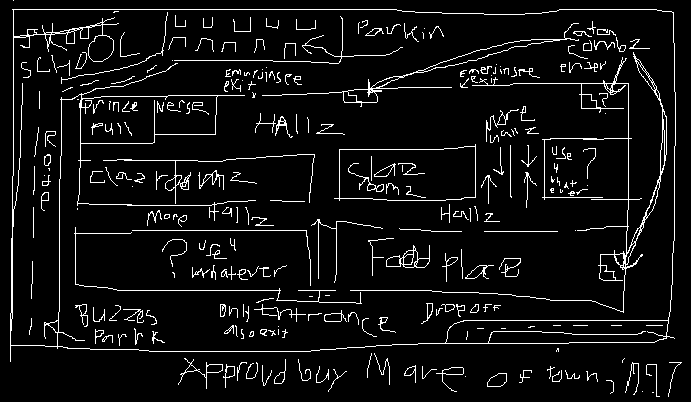 SKOOL
SCHOOL
Parkin
Catan
Combz
enter
Emurjinsee
exit
Emerjinsee
exit
Prince
Pull
Nerse
HALLz
More
hallz
Clazroomz
Claz
roomz
use
4
what
ever
?
Roide
More Hallz
Hallz
?
use 4
whatever
Food place
Buzzes
Parrk
Only Entrance
also exit
Drop off
Approvd buy Mare of town, 1997